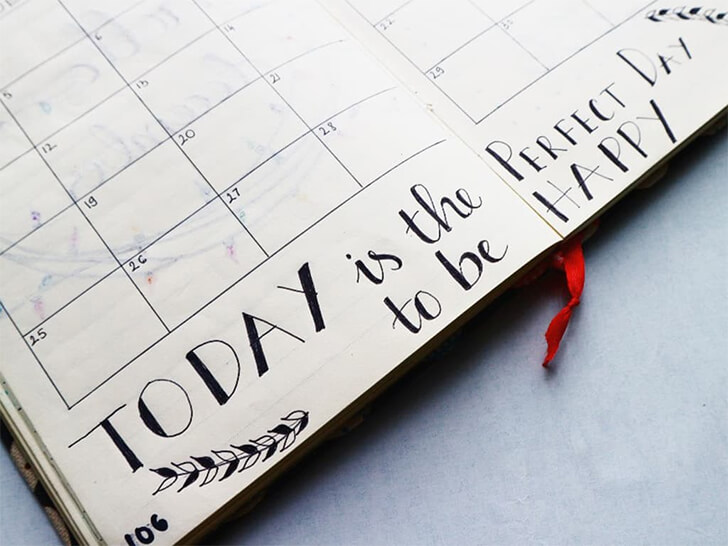 5 6 14
12 13 21
19 20 28
26 27
25
22 30
29
TODAY is the PERFECT DAY
to be HAPPY
106